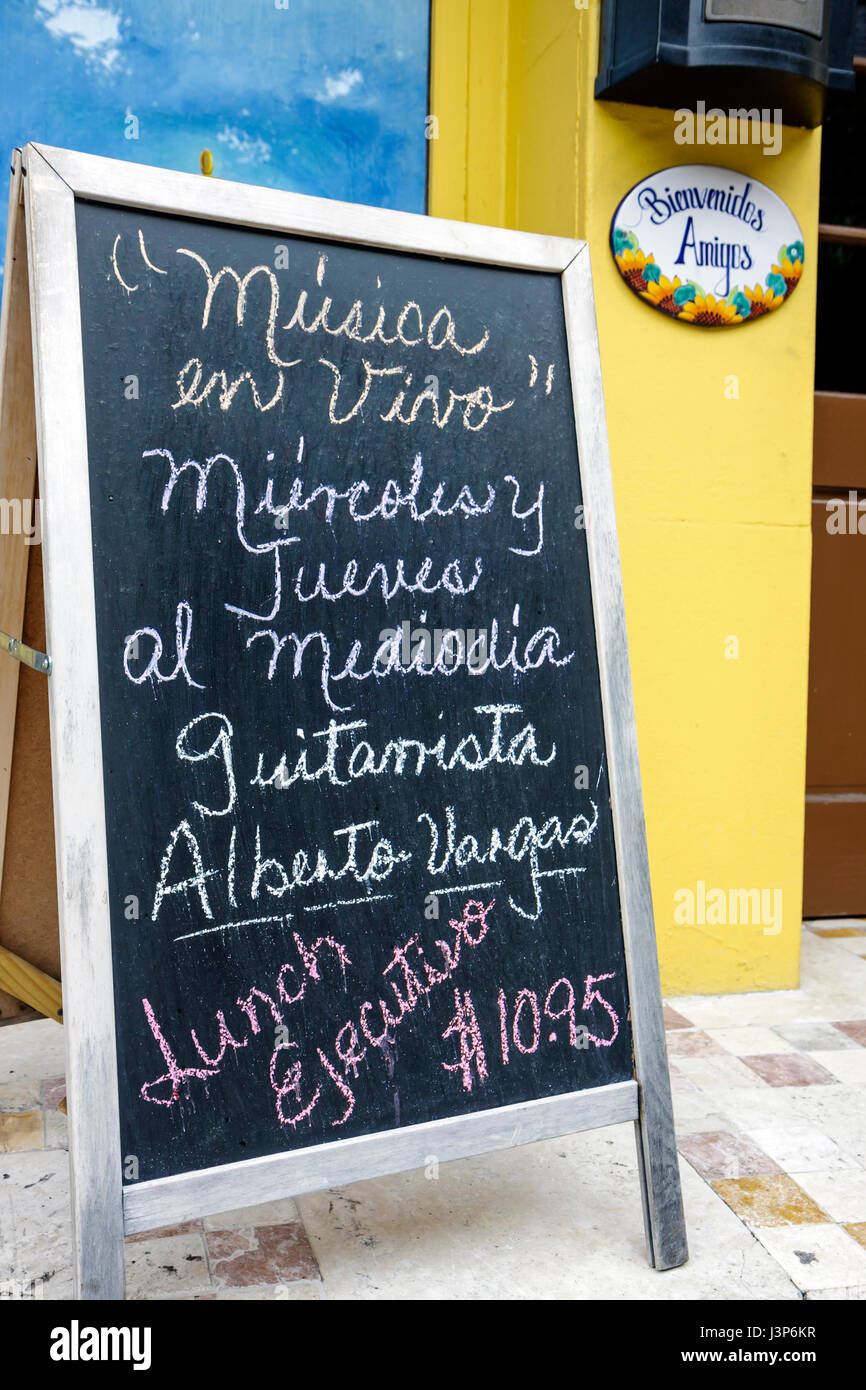 "Música
en Vivo"
Miércoles y
Jueves
al Mediodía
guitarrista
Alberto Vargas
Lunch
Ejecutivo $10.95
Bienvenidos
Amigos
alamy
Image ID: J3P6KR
www.alamy.com